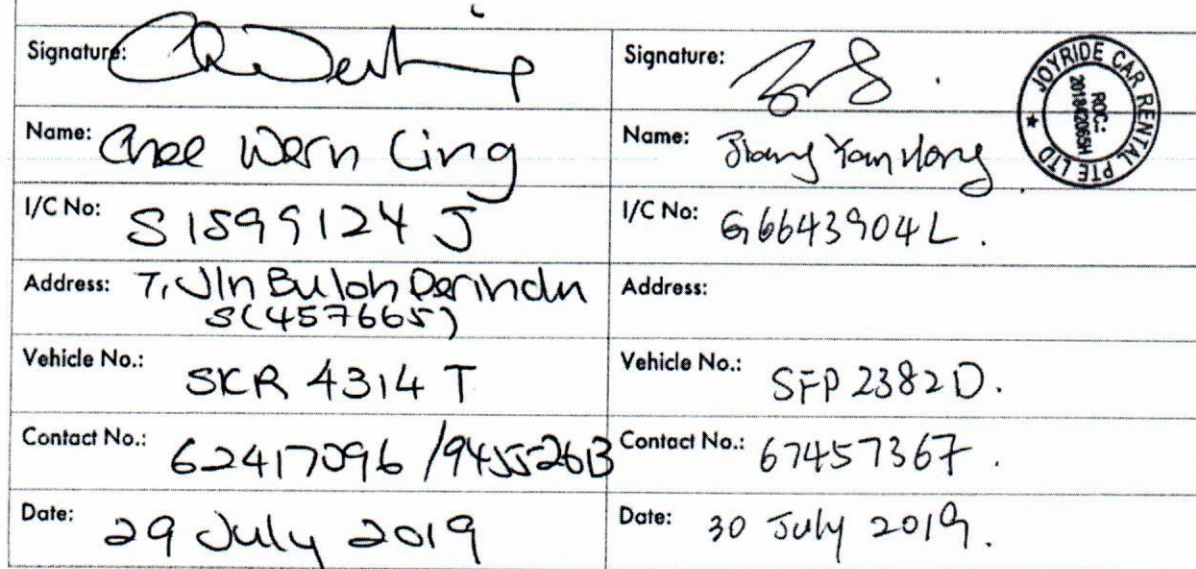 Signature:
Signature:
JOYRIDE CAR RENTAL PTE LTD
ROC.:
201842065H
Name: Chee Wern Ling
Name: Jiang Yan Hong
I/C No: S1599124J
I/C No: G6643904L.
Address: 7, Jln Buloh Perindu
S(457665)
Address:
Vehicle No.: SKR 4314 T
Vehicle No.: SFP 2382D.
Contact No.: 62417096 /94552613
Contact No.: 67457367.
Date: 29 July 2019
Date: 30 July 2019.